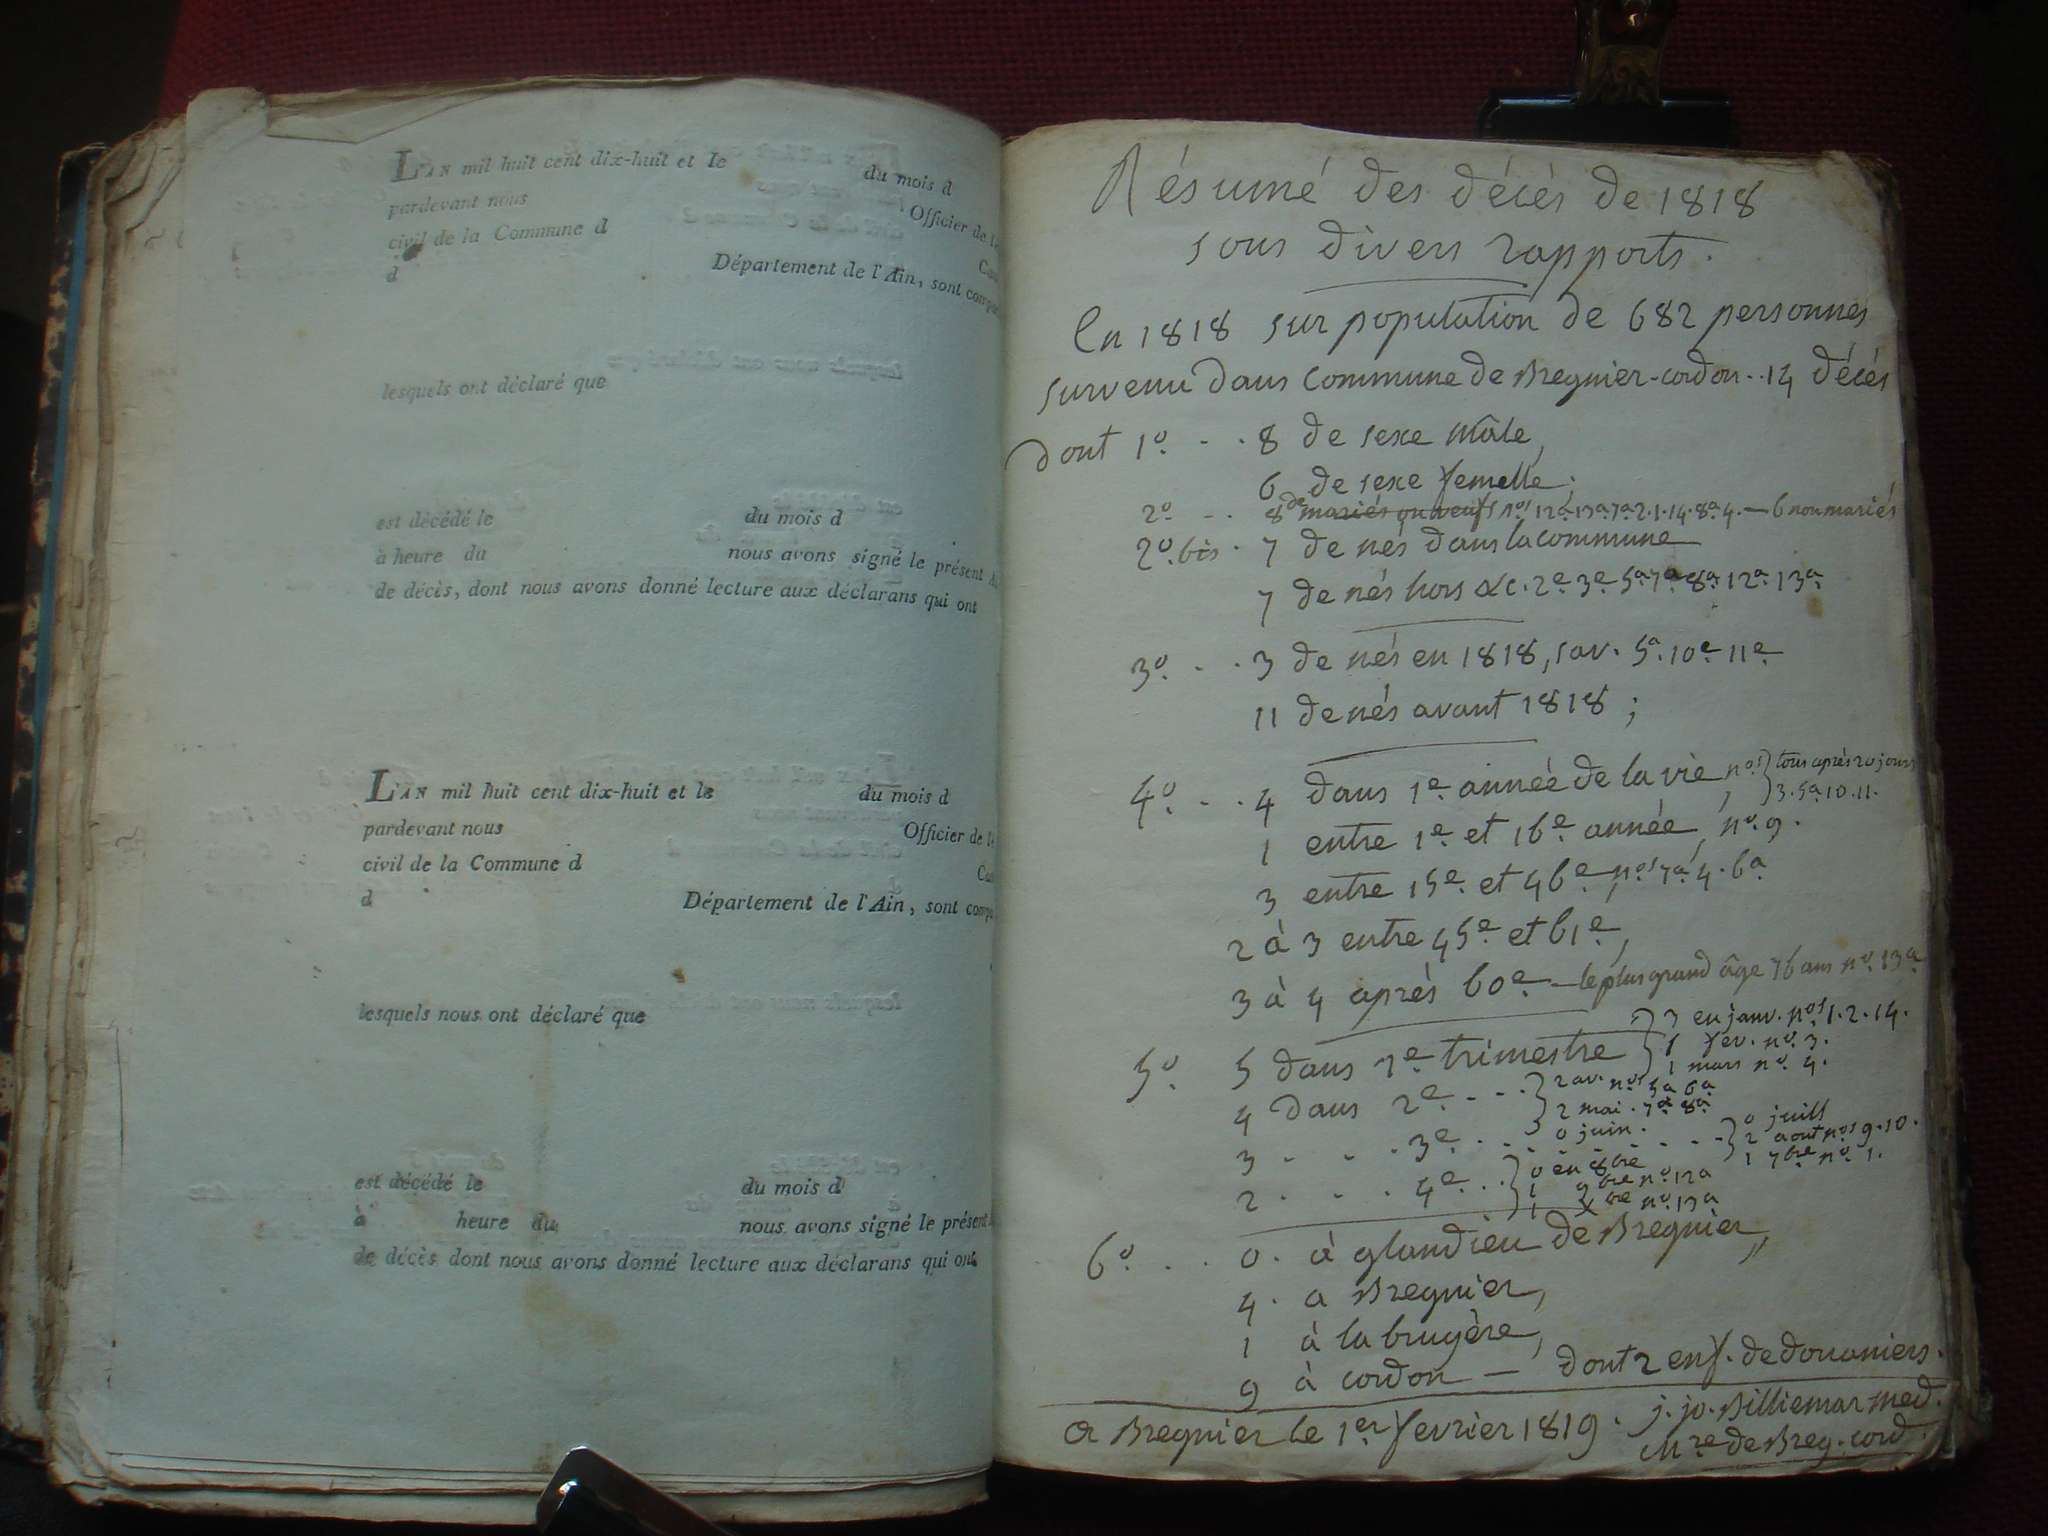 L'AN mil huit cent dix-huit et le du mois d
pardevant nous Officier de l'
civil de la Commune d
d Département de l'Ain, sont comp
lesquels ont déclaré que
est décédé le du mois d
à heure du nous avons signé le présent
de décès, dont nous avons donné lecture aux déclarans qui ont
L'AN mil huit cent dix-huit et le du mois d
pardevant nous Officier de l'
civil de la Commune d
d Département de l'Ain, sont comp
lesquels nous ont déclaré que
est décédé le du mois d
à heure du nous avons signé le présent
de décès dont nous avons donné lecture aux déclarans qui ont
Résumé des décés de 1818
sous divers rapports.
En 1818 sur population de 682 personnes
survenu dans commune de Bregnier-cordon..14 décés
dont 1º. .. 8 de sexe mâle,
6 de sexe femelle.
2º. .. 8 de mariés ou veufs nos 12a.13a.7a.2.1.14.8a.4. — 6 non mariés
2º. bis . 7 de nés dans la commune
7 de nés hors &c. 2e. 3e. 5a. 7a. 8a. 12a. 13a
3º. .. 3 de nés en 1818, sav. 5a. 10e. 11e.
11 de nés avant 1818 ;
4º. .. 4 dans 1e. année de la vie, nos } tous après 20 jours
3. 5a. 10. 11.
1 entre 1e. et 16e. année, nº. 9.
3 entre 15e. et 46e. nos 7a. 4. 6a
2 à 3 entre 45e. et 61e.,
3 à 4 après 60e. — le plus grand âge 76 ans nº. 13a.
5º. 5 dans 1e. trimestre } 3 en janv. nos 1. 2. 14.
1 fev. nº. 3.
1 mars nº. 4.
4 dans 2e. ... } 2 av. nos 5a 6a
2 mai. 7a. 8a.
0 juin.
3 . . . 3e. .. } 0 juill
2 aout nos 9. 10.
1 7bre nº. 1.
2 . . . 4e. .. } 0 en 8bre
1 9bre nº. 12a
1 Xbre nº. 13a
6º. .. 0. à glandieu de Bregnier,
4. a Bregnier,
1 à la bruyère,
9 à cordon — dont 2 enf. de douaniers.
a Bregnier le 1er fevrier 1819. j. jo. Billiemaz med.
M.re de Breg. cord.